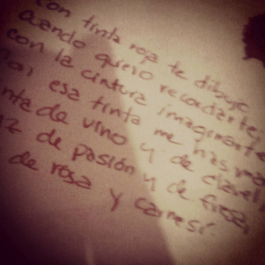 con tinta roja te dibuje
cuando quiero recordarte,
con la cintura imaginante
esa tinta me has
de vino y de clavel
de pasión y de fresa,
de rosa y carmesí.